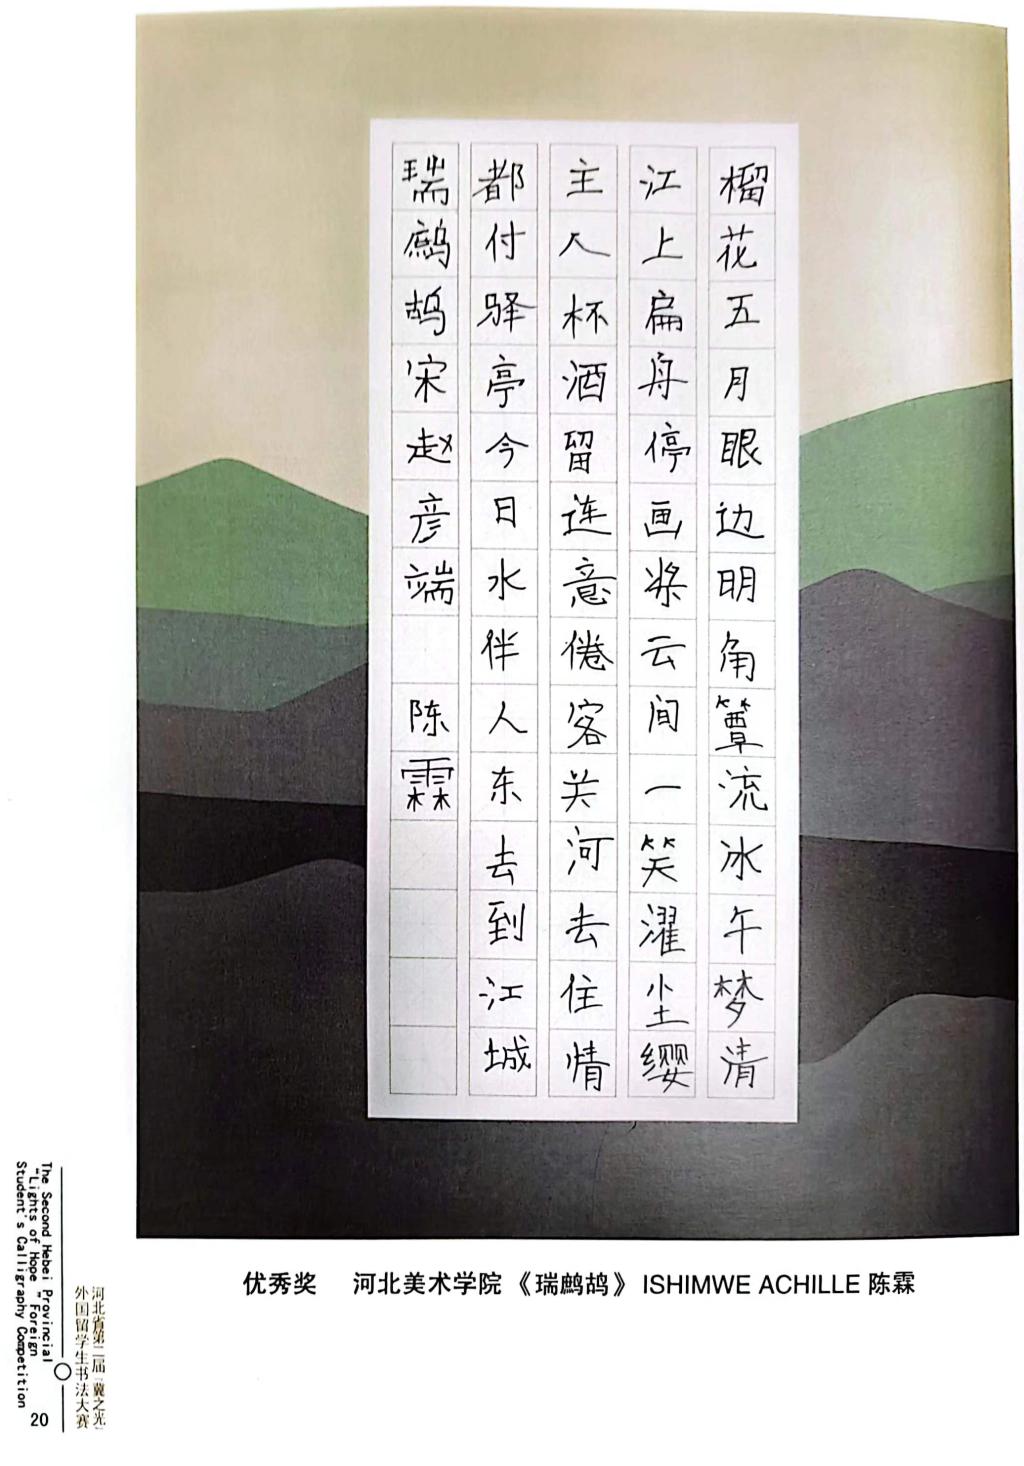 榴花五月眼边明角簟流冰午梦清
江上扁舟停画桨云间一笑濯尘缨
主人杯酒留连意倦客关河去住情
都付驿亭今日水伴人东去到江城
瑞鹧鸪宋赵彦端 陈霖
优秀奖 河北美术学院《瑞鹧鸪》ISHIMWE ACHILLE 陈霖
The Second Hebei Provincial
"Lights of Hope" Foreign
Student's Calligraphy Competition
河北省第二届“冀之光”
外国留学生书法大赛
20